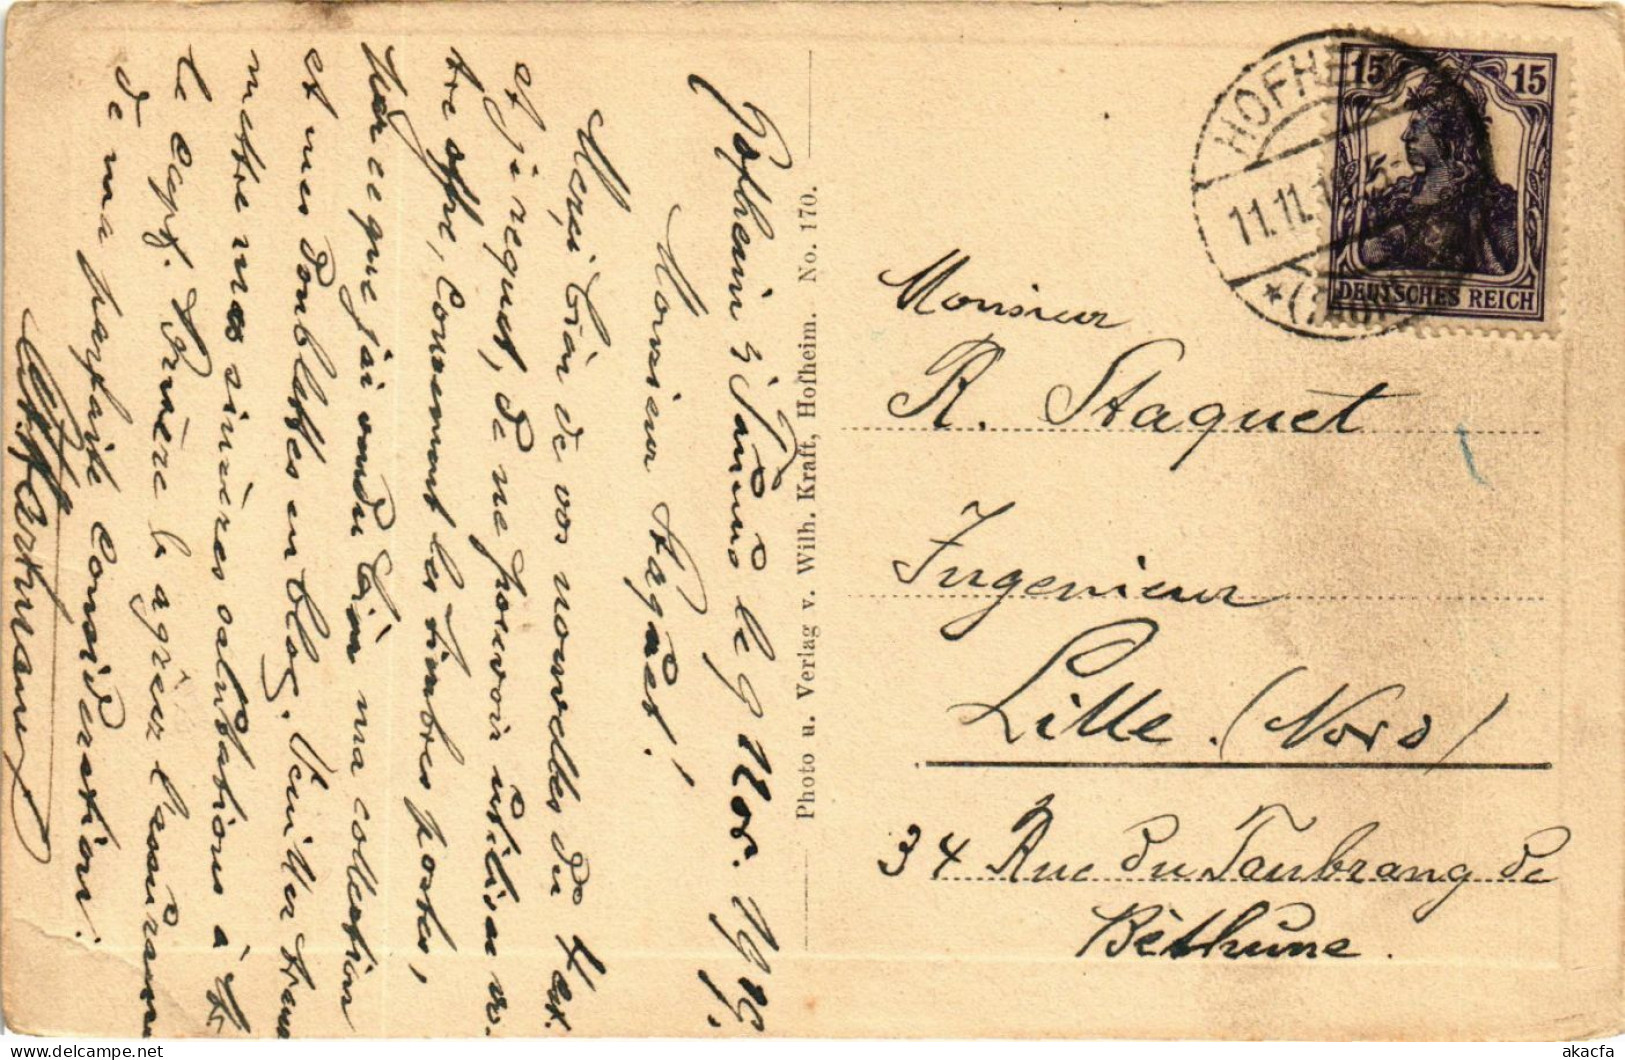 Hofheim i/Taunus le 9 Nov. 1919.
Monsieur Staquet!
Merci bien de vos nouvelles du 4 ct.
et je regret, de ne pouvoir utiliser vo-
tre offre, concernant les timbres postes,
parceque j'ai vendu bien ma collection
et mes doublettes en bloc. Veuillez trans
mettre mes sincères salutations à
le Capt. et agréez l'assurance
de ma parfaite Considération.
Hartmann
Photo u. Verlag v. Wilh. Kraft, Hofheim. No. 170.
HOFHEIM
11.11.
★ (TAUNUS)
15 15
DEUTSCHES REICH
Monsieur
R. Staquet
Ingenieur
Lille. (Nord)
34 Rue du Faubrang de
Béthune.
akacfa